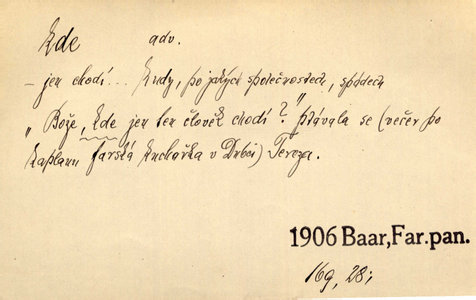 Kde adv.
– jen chodí... Kudy, po jakých společnostech,
„Bože, kde jen ten člověk chodí?" ptávala se (večer po
kaplanu farská kuchařka v Dubči) Tereza.
1906 Baar, Far. pan.
169, 28;